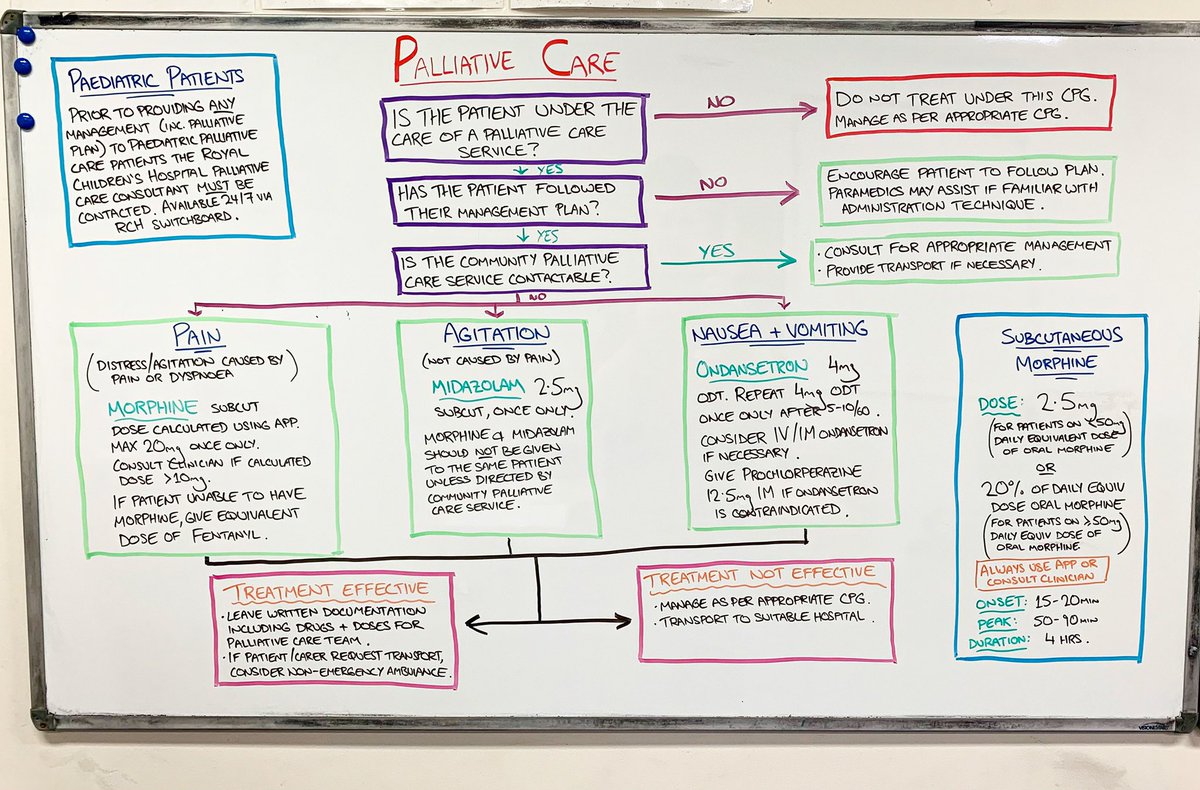 PALLIATIVE CARE
PAEDIATRIC PATIENTS
PRIOR TO PROVIDING ANY
MANAGEMENT (INC. PALLIATIVE
PLAN) TO PAEDIATRIC PALLIATIVE
CARE PATIENTS THE ROYAL
CHILDREN'S HOSPITAL PALLIATIVE
CARE CONSULTANT MUST BE
CONTACTED. AVAILABLE 24/7 VIA
RCH SWITCHBOARD.
IS THE PATIENT UNDER THE
CARE OF A PALLIATIVE CARE
SERVICE?
NO
DO NOT TREAT UNDER THIS CPG.
MANAGE AS PER APPROPRIATE CPG.
YES
HAS THE PATIENT FOLLOWED
THEIR MANAGEMENT PLAN?
NO
ENCOURAGE PATIENT TO FOLLOW PLAN.
PARAMEDICS MAY ASSIST IF FAMILIAR WITH
ADMINISTRATION TECHNIQUE.
YES
IS THE COMMUNITY PALLIATIVE
CARE SERVICE CONTACTABLE?
YES
· CONSULT FOR APPROPRIATE MANAGEMENT
· PROVIDE TRANSPORT IF NECESSARY.
NO
PAIN
(DISTRESS/AGITATION CAUSED BY
PAIN OR DYSPNOEA)
MORPHINE SUBCUT
DOSE CALCULATED USING APP.
MAX 20mg ONCE ONLY.
CONSULT CLINICIAN IF CALCULATED
DOSE >10mg.
IF PATIENT UNABLE TO HAVE
MORPHINE, GIVE EQUIVALENT
DOSE OF FENTANYL.
AGITATION
(NOT CAUSED BY PAIN)
MIDAZOLAM 2.5mg
SUBCUT, ONCE ONLY.
MORPHINE & MIDAZOLAM
SHOULD NOT BE GIVEN
TO THE SAME PATIENT
UNLESS DIRECTED BY
COMMUNITY PALLIATIVE
CARE SERVICE.
NAUSEA + VOMITING
ONDANSETRON 4mg
ODT. REPEAT 4mg ODT
ONCE ONLY AFTER 5-10/60.
CONSIDER IV/IM ONDANSETRON
IF NECESSARY.
GIVE PROCHLORPERAZINE
12.5mg IM IF ONDANSETRON
IS CONTRAINDICATED.
SUBCUTANEOUS
MORPHINE
DOSE: 2.5mg
(FOR PATIENTS ON <50mg
DAILY EQUIVALENT DOSE
OF ORAL MORPHINE)
OR
20% OF DAILY EQUIV
DOSE ORAL MORPHINE
(FOR PATIENTS ON ≥50mg
DAILY EQUIV DOSE OF
ORAL MORPHINE)
ALWAYS USE APP OR
CONSULT CLINICIAN
ONSET: 15-20MIN
PEAK: 50-90MIN
DURATION: 4 HRS.
TREATMENT EFFECTIVE
· LEAVE WRITTEN DOCUMENTATION
INCLUDING DRUGS + DOSES FOR
PALLIATIVE CARE TEAM.
· IF PATIENT/CARER REQUEST TRANSPORT,
CONSIDER NON-EMERGENCY AMBULANCE.
TREATMENT NOT EFFECTIVE
· MANAGE AS PER APPROPRIATE CPG.
· TRANSPORT TO SUITABLE HOSPITAL.